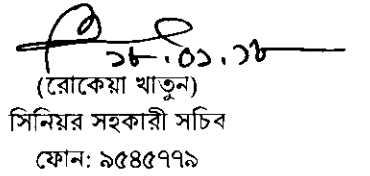 ১৮.০১.১৮
(রোকেয়া খাতুন)
সিনিয়র সহকারী সচিব
ফোন: ৯৫৪৫৭৭৯